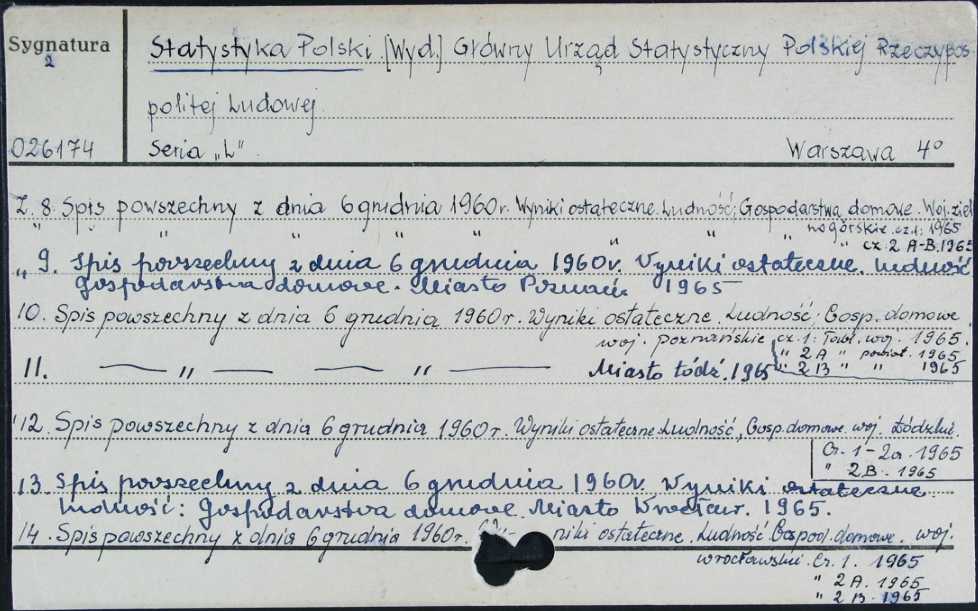 Sygnatura Statystyka Polski. [Wyd.] Główny Urząd Statystyczny Polskiej Rzeczypos
2
politej Ludowej.
026174 Seria „L". Warszawa 4°
Z. 8. Spis powszechny z dnia 6 grudnia 1960 r. Wyniki ostateczne. Ludność; Gospodarstwa domowe. Woj. ziel
nogórskie. cz. 1: 1965
" " " " " " " " " cz. 2 A-B. 1965
„ 9. Spis powszechny z dnia 6 grudnia 1960 r. Wyniki ostateczne. Ludność
Gospodarstwa domowe. Miasto Poznań. 1965
10. Spis powszechny z dnia 6 grudnia 1960 r. Wyniki ostateczne. Ludność; Gosp. domowe
woj. poznańskie cz. 1: woj. 1965.
" 2A " powiat. 1965
11. — " — — " — Miasto Łódź. 1965 " 2B " " 1965
12. Spis powszechny z dnia 6 grudnia 1960 r. Wyniki ostateczne. Ludność, Gosp. domowe. woj. Łódzkie.
Cz. 1-2a. 1965
" 2B. 1965
13. Spis powszechny z dnia 6 grudnia 1960 r. Wyniki ostateczne.
Ludność: Gospodarstwa domowe. Miasto Wrocław. 1965.
14. Spis powszechny z dnia 6 grudnia 1960 r. niki ostateczne. Ludność Gospod. domowe. woj.
wrocławskie. Cz. 1. 1965
" 2A. 1965
" 2B. 1965